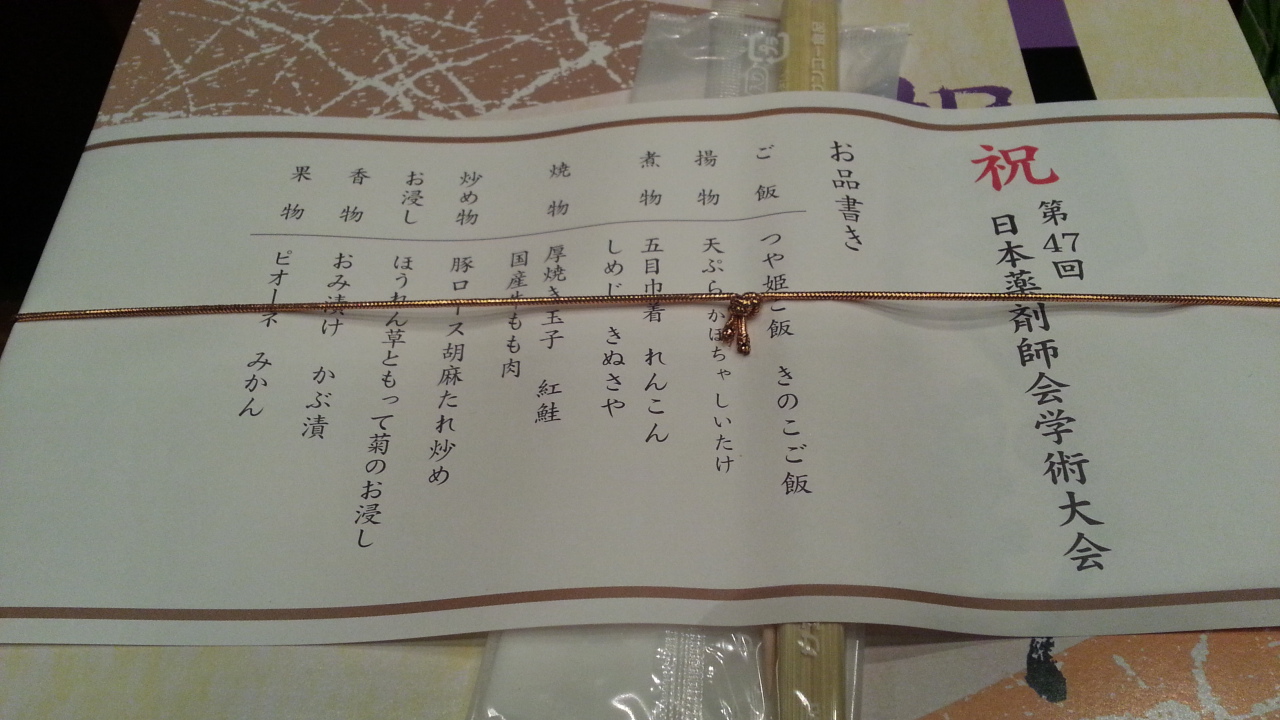 祝
第47回
日本薬剤師会学術大会
お品書き
ご飯 つや姫ご飯 きのこご飯
揚物 天ぷら かぼちゃ しいたけ
煮物 五目巾着 れんこん
しめじ きぬさや
焼物 厚焼き玉子 紅鮭
国産牛もも肉
炒め物 豚ロース胡麻たれ炒め
お浸し ほうれん草ともって菊のお浸し
香物 おみ漬け かぶ漬
果物 ピオーネ みかん